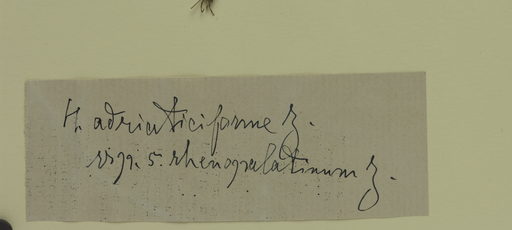 H. adriaticiforme Z.
ssp. s. rhenopalatinum Z.